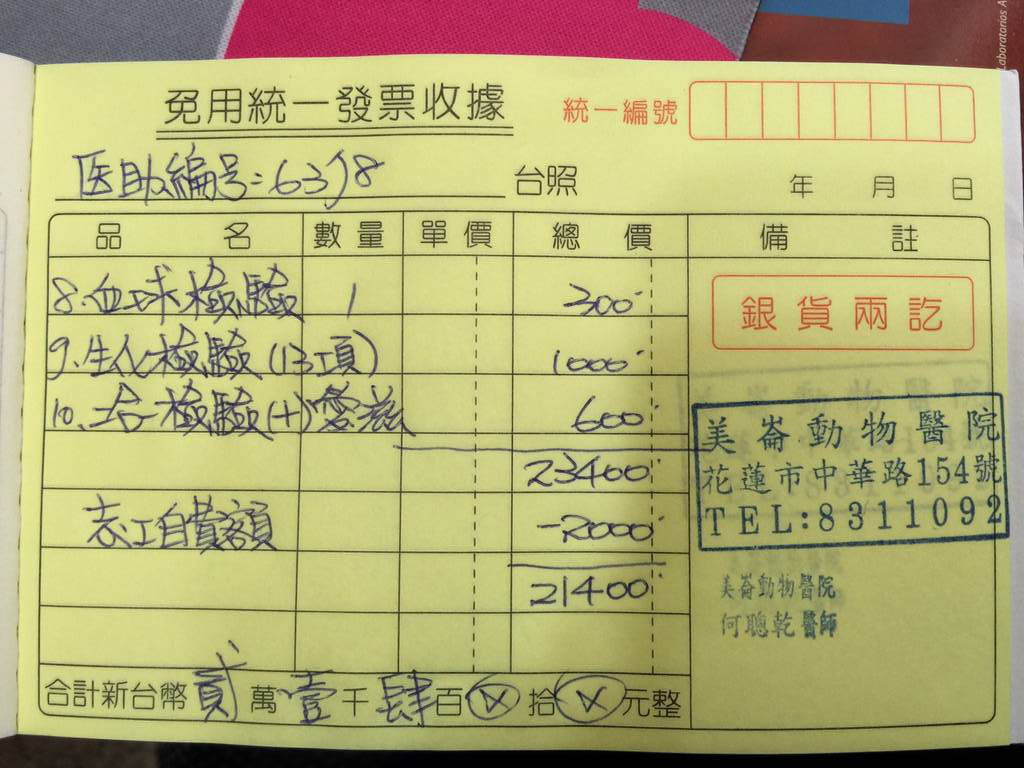 免用統一發票收據
統一編號
医助編号:6358
台照
年 月 日
品 名 數量 單價 總 價 備 註
8.血球檢驗 1 300
9.生化檢驗(13項) 1000
10. 檢驗(+)愛滋 600
23400
志工自費額 -2000
21400
合計新台幣貳萬壹千肆百ⓧ拾ⓧ元整
銀貨兩訖
美崙動物醫院
花蓮市中華路154號
TEL:8311092
美崙動物醫院
何聰乾醫師
Laboratorios A